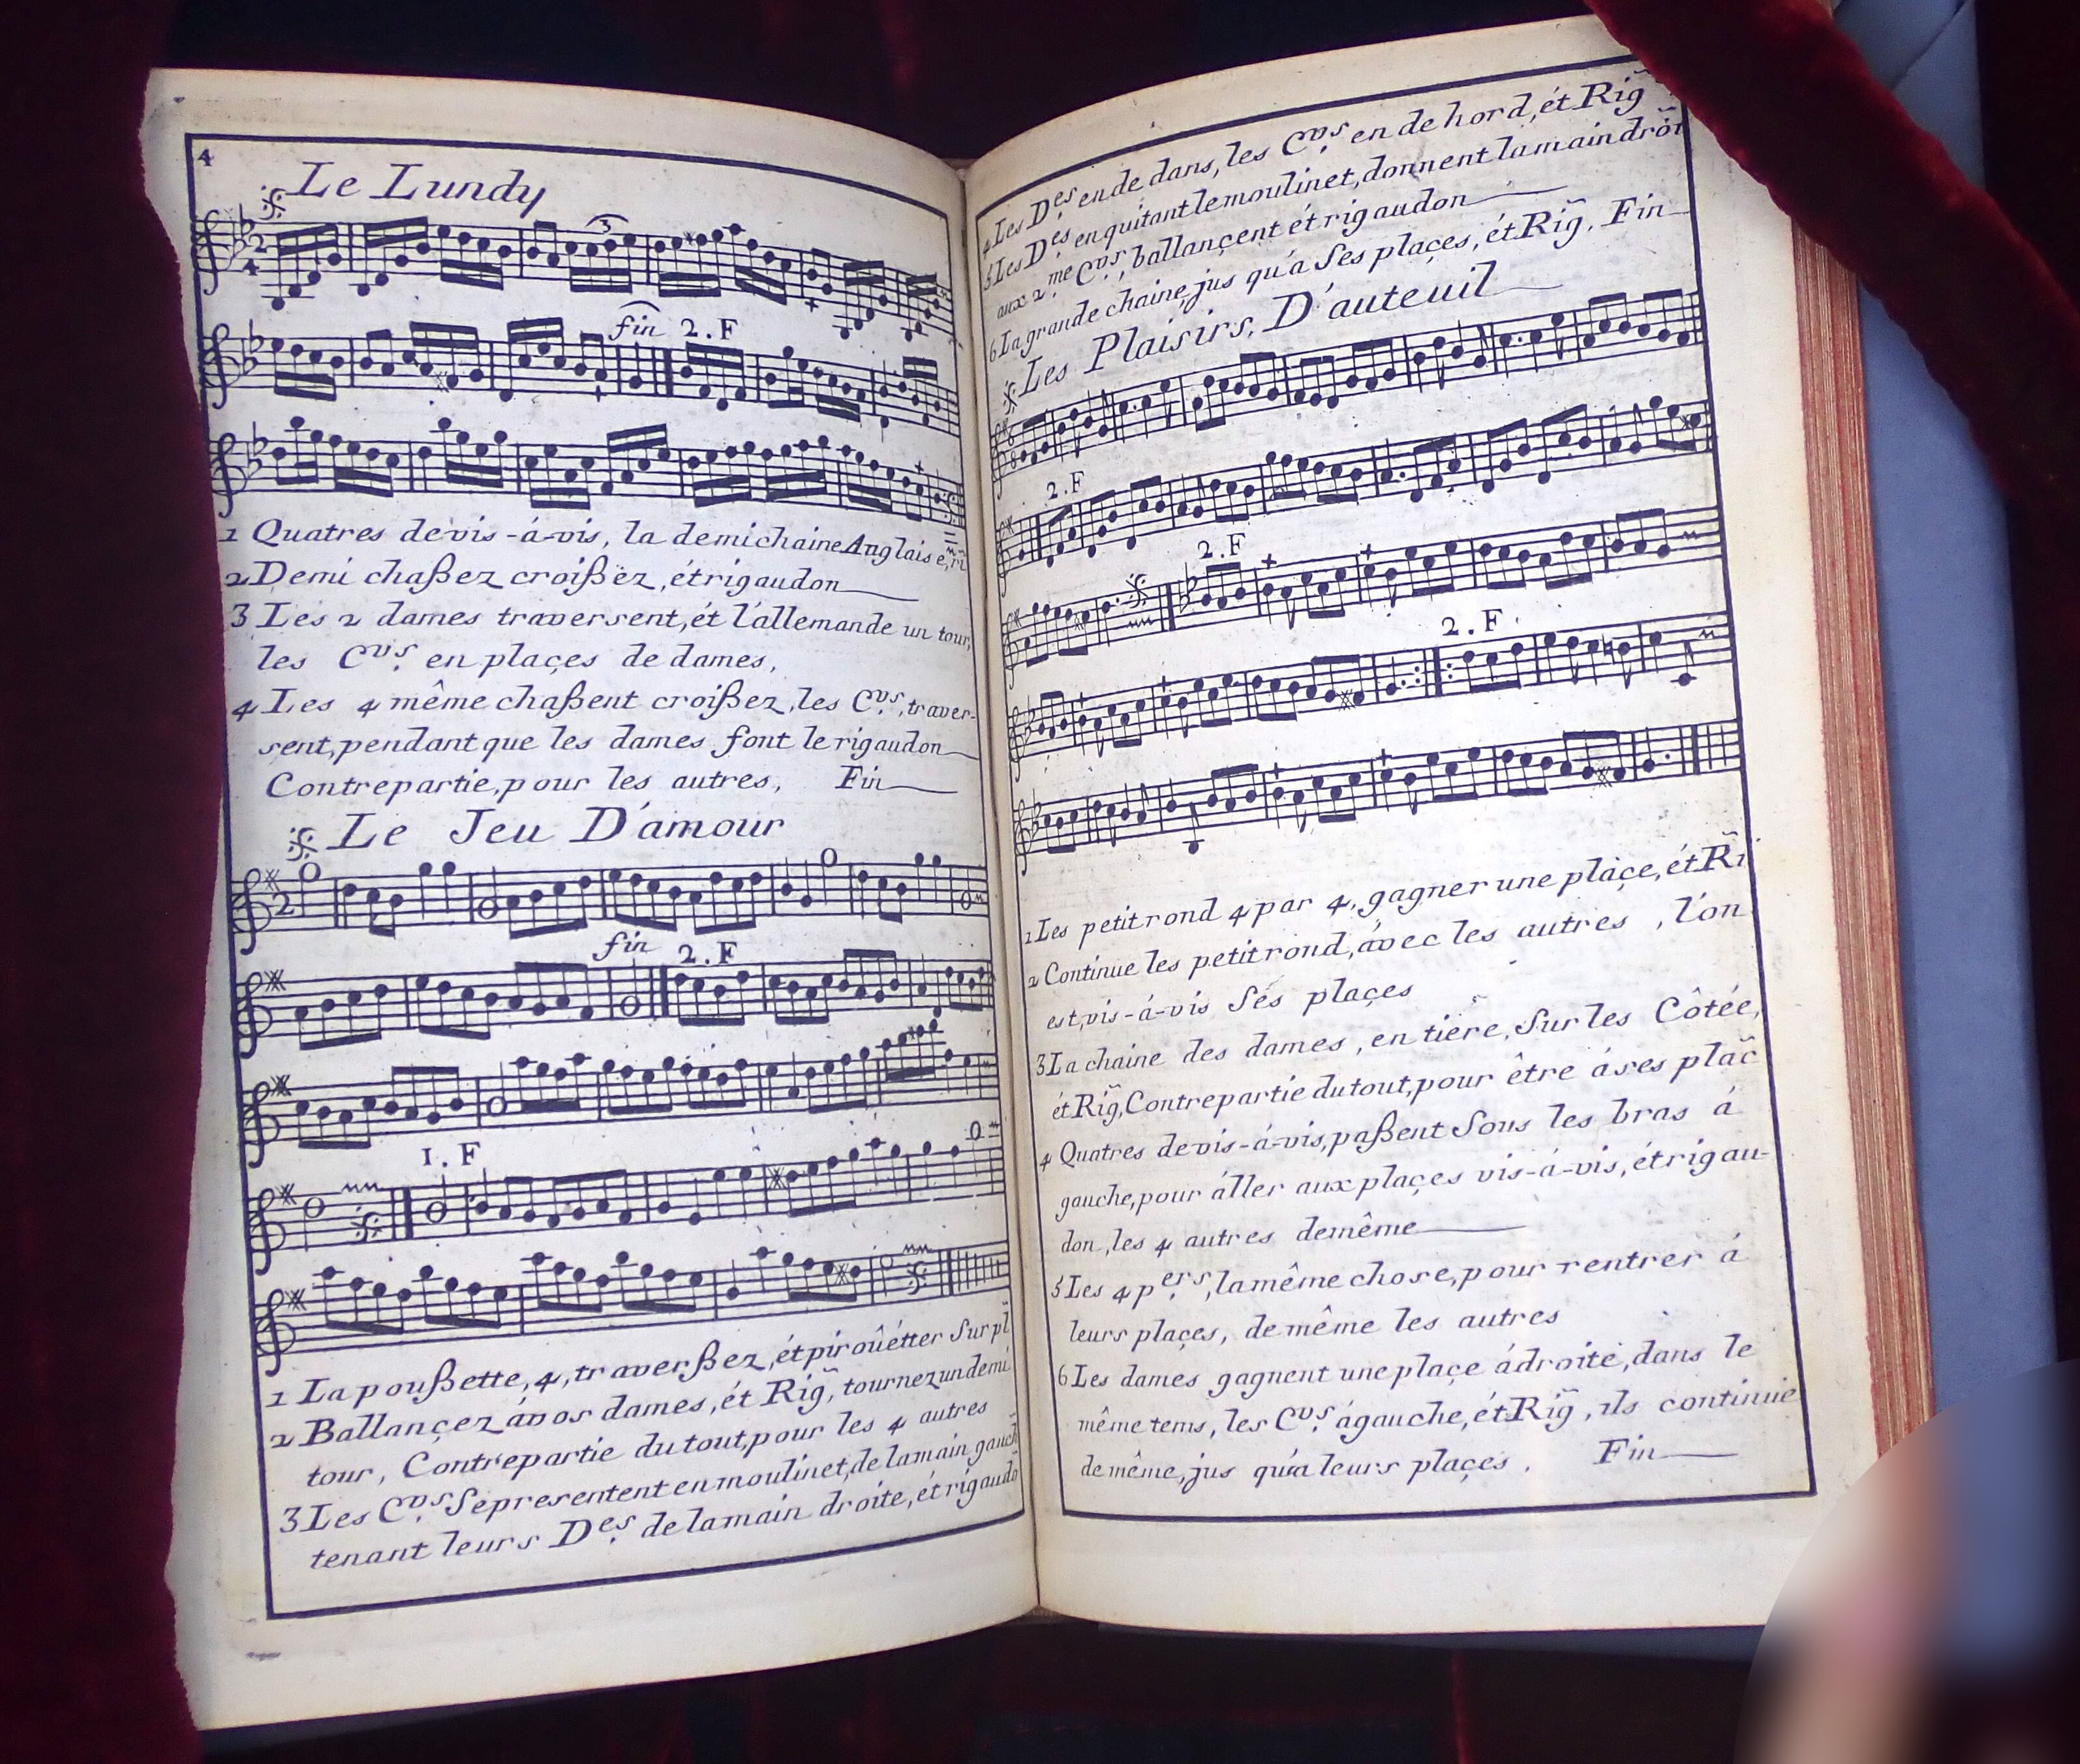 4
Le Lundy
fin 2.F
1 Quatres devis-á-vis, la demichaine Anglaise, ri
2 Demi chaßez croißez, ét rigaudon
3 Les 2 dames traversent, ét l'allemande un tour,
les C.vrs en plaçes de dames,
4 Les 4 même chaßent croißez, les C.vrs, traver-
sent, pendant que les dames font le rigaudon
Contrepartie, pour les autres, Fin
Le Jeu D'amour
2
fin 2.F
1.F
1 La poußette, 4, traverßez, ét piroûétter Sur pl
2 Ballançez á vos dames, ét Rig, tournez un demi
tour, Contrepartie du tout, pour les 4 autres
3 Les C.vrs Se presentent en moulinet, de la main gauch
tenant leurs D.es de la main droite, ét rigaudo
4 Les D.es en de dans, les C.vrs en de hord, ét Rig
5 Les D.es en quitant le moulinet, donnent la main droi
aux 2.me C.vrs, ballançent ét rigaudon
6 La grande chaine, jus qu'a Ses plaçes, ét Rig. Fin
Les Plaisirs, D'auteuil
2.F
2.F
2.F
1 Les petit rond 4 par 4, gagner une plaçe, ét Ri
2 Continue les petit rond, ávec les autres, l'on
est, vis-á-vis Sés plaçes
3 La chaine des dames, en tiére, Sur les Côtée,
ét Rig, Contrepartie du tout, pour être á ses plac
4 Quatres devis-á-vis, paßent Sous les bras á
gauche, pour áller aux plaçes vis-á-vis, ét rigau-
don, les 4 autres de même
5 Les 4 p.ers, la même chose, pour rentrer á
leurs plaçes, de même les autres
6 Les dames gagnent une plaçe á droite, dans le
même tems, les C.vrs á gauche, ét Rig, ils continue
de même, jus qu'a leurs plaçes. Fin